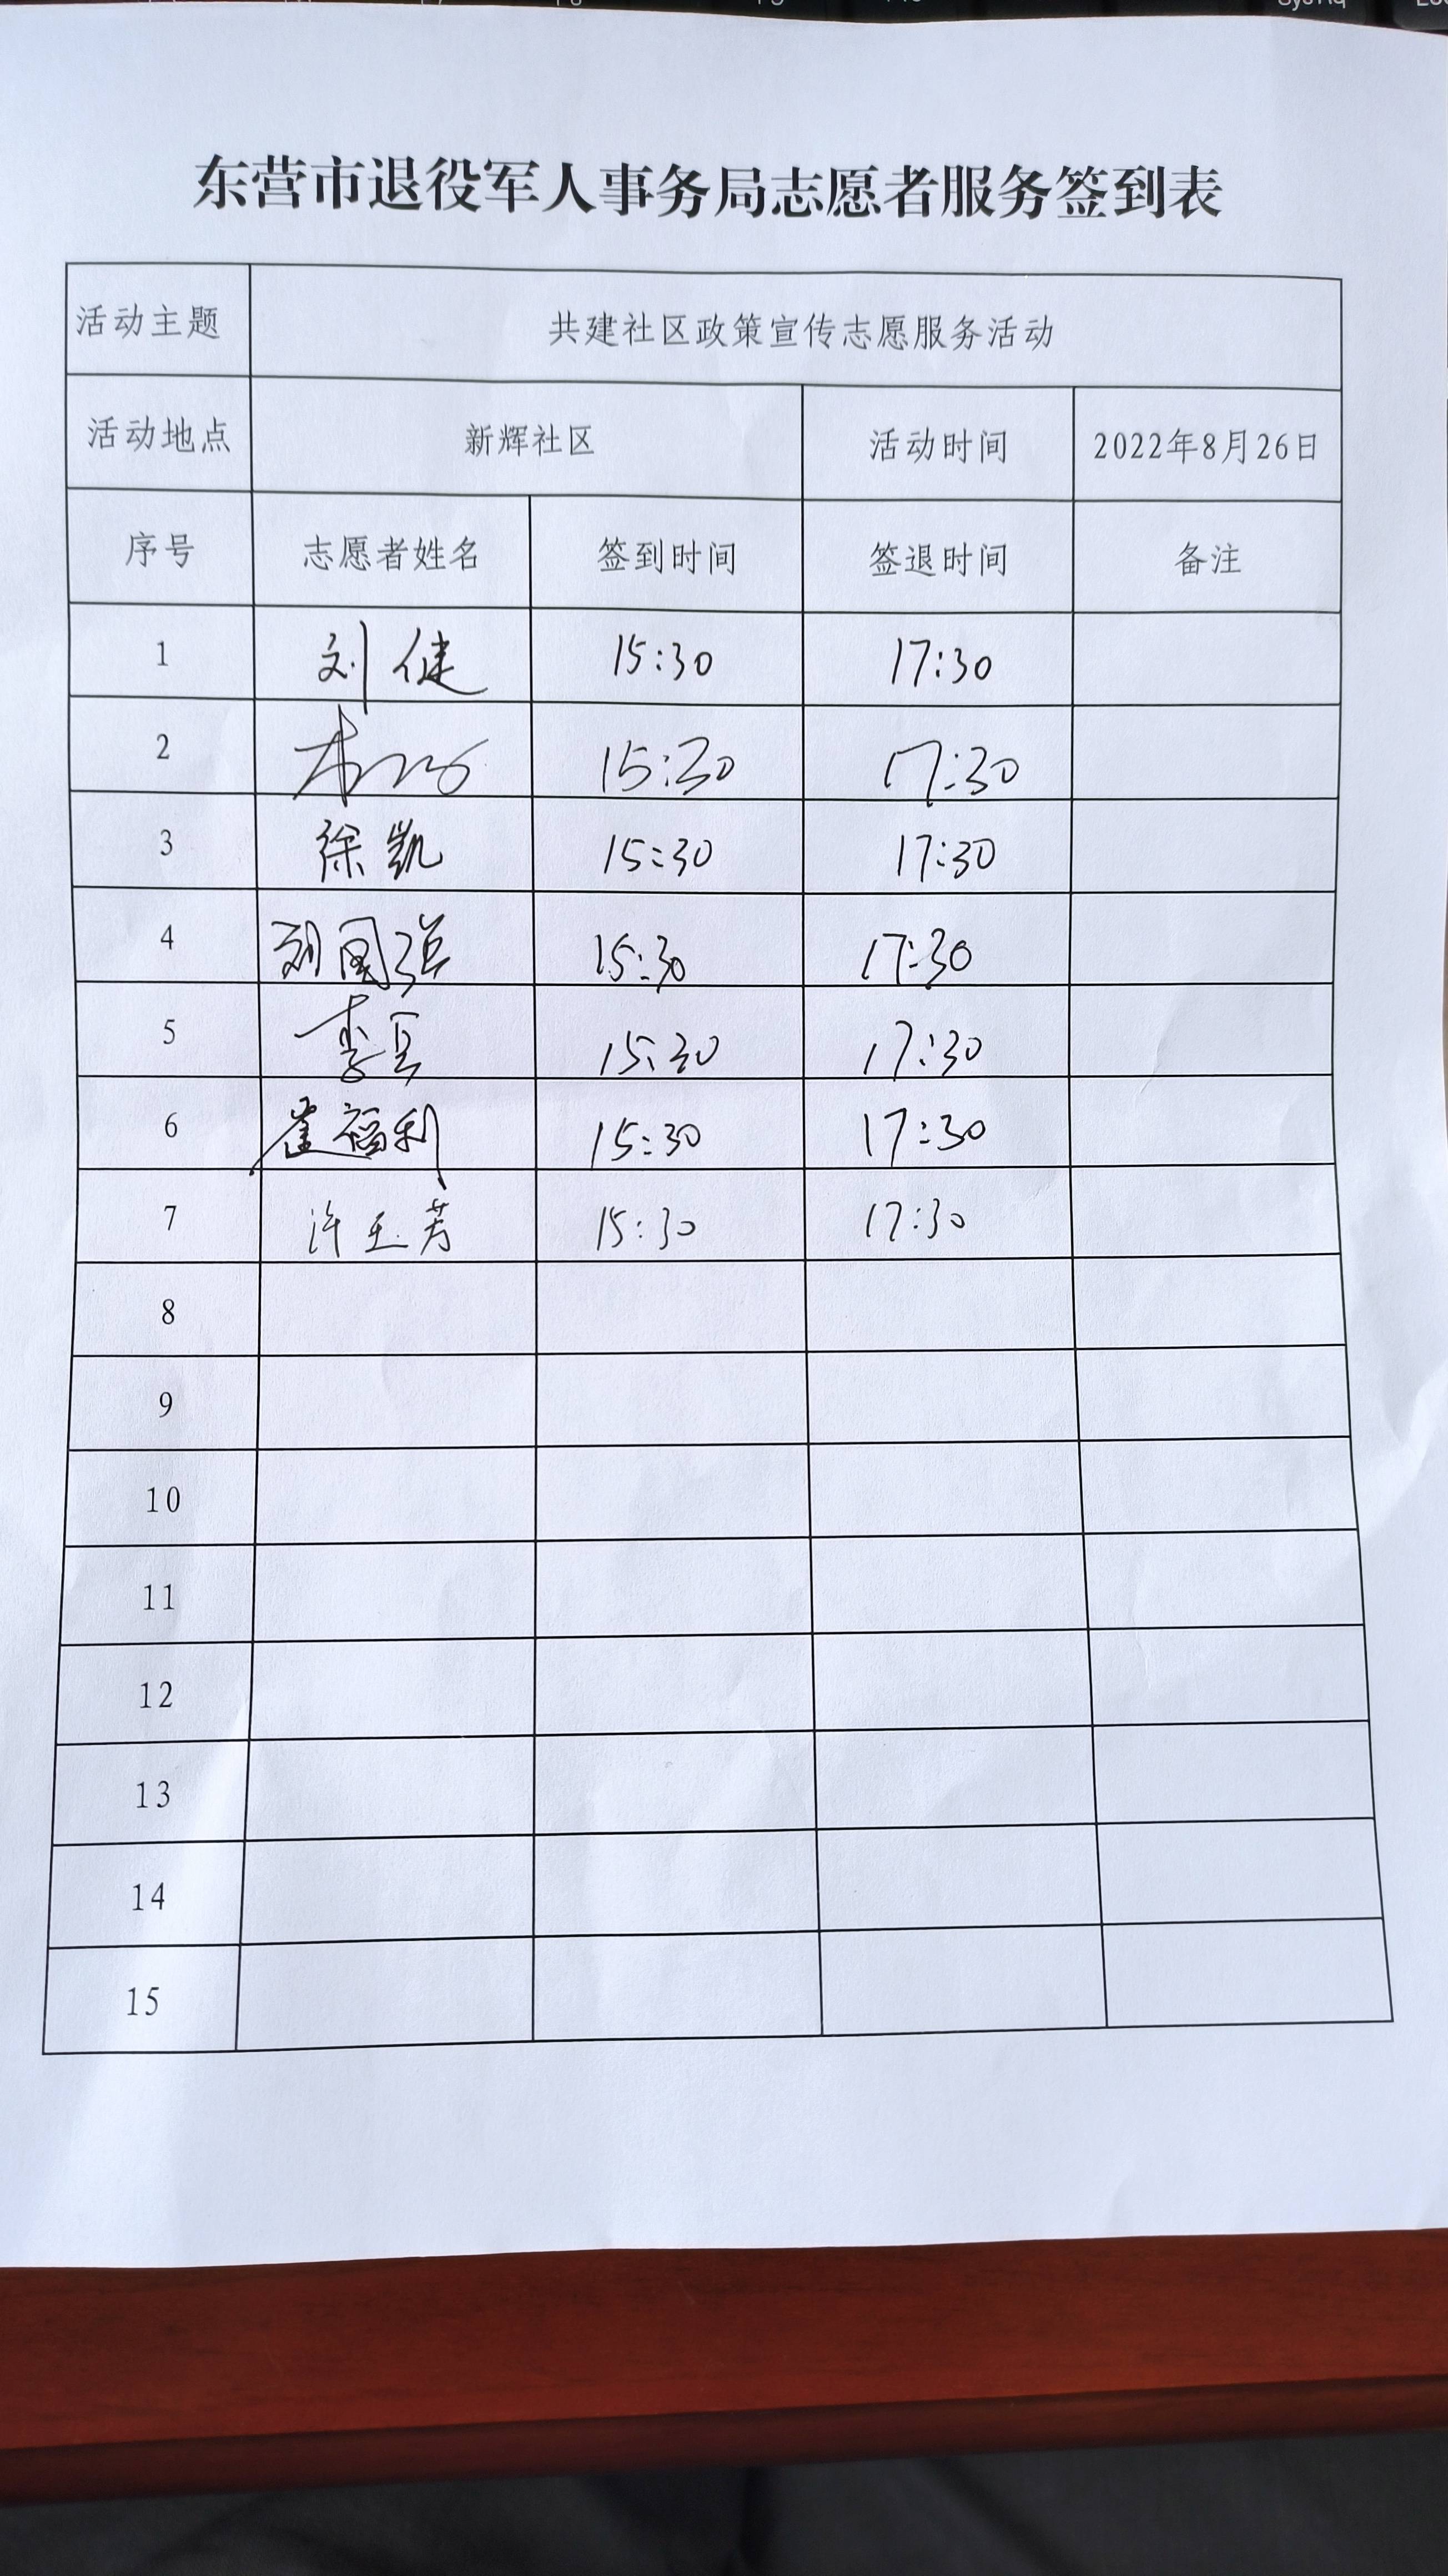 东营市退役军人事务局志愿者服务签到表
活动主题 共建社区政策宣传志愿服务活动
活动地点 新辉社区 活动时间 2022年8月26日
序号 志愿者姓名 签到时间 签退时间 备注
1 刘健 15:30 17:30
2 15:30 17:30
3 徐凯 15:30 17:30
4 刘国强 15:30 17:30
5 李 15:30 17:30
6 崔福利 15:30 17:30
7 许玉芳 15:30 17:30
8
9
10
11
12
13
14
15